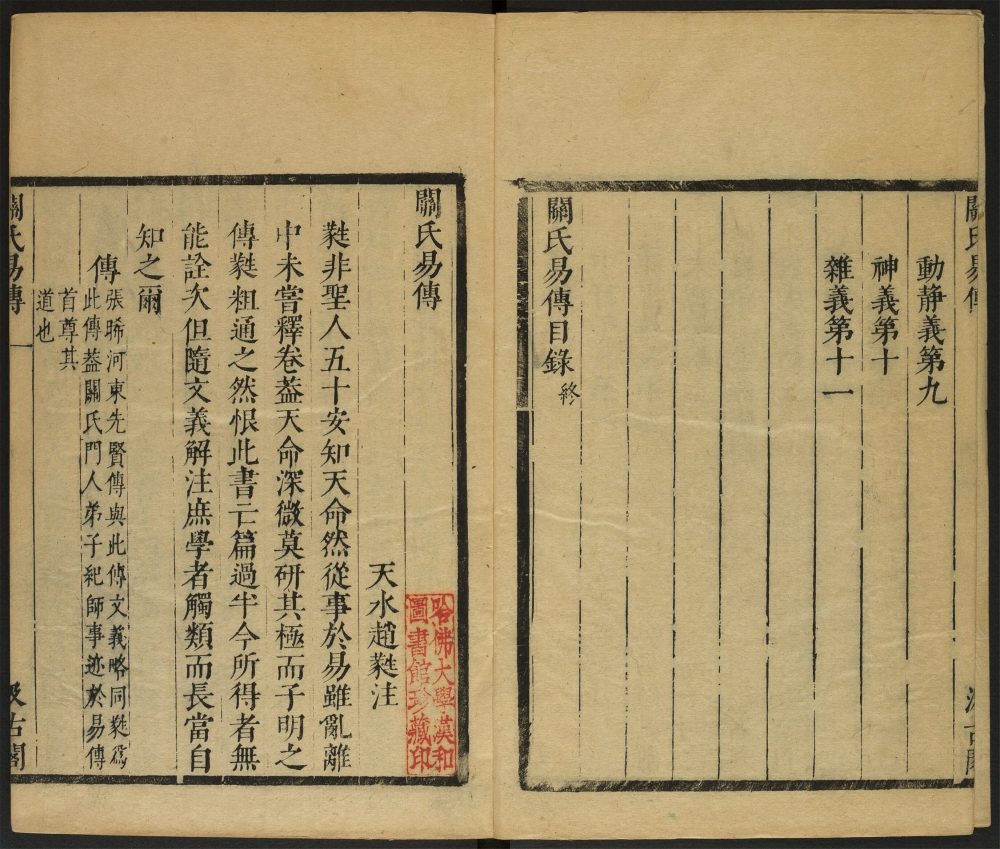 關氏易傳
動靜義第九
神義第十
雜義第十一
關氏易傳目錄 終
關氏易傳
天水趙蕤注
蕤非聖人五十安知天命然從事於易雖亂離
中未嘗釋卷蓋天命深微莫研其極而子明之
傳蕤粗通之然恨此書亡篇過半今所得者無
能詮次但隨文義解注庶學者觸類而長當自
知之爾
傳
張晞河東先賢傳與此傳文義略同蕤爲
此傳葢關氏門人弟子紀師事迹於易傳
首尊其
道也
關氏易傳 一 汲古閣
哈佛大學漢和
圖書館珍藏印